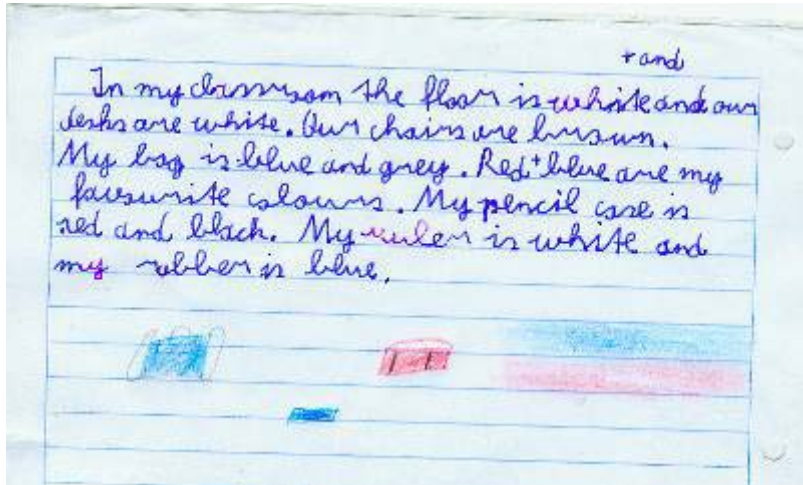 + and
In my classroom the floor is white and our
desks are white. Our chairs are brown.
My bag is blue and grey. Red + blue are my
favourite colours. My pencil case is
red and black. My ruler is white and
my rubber is blue.